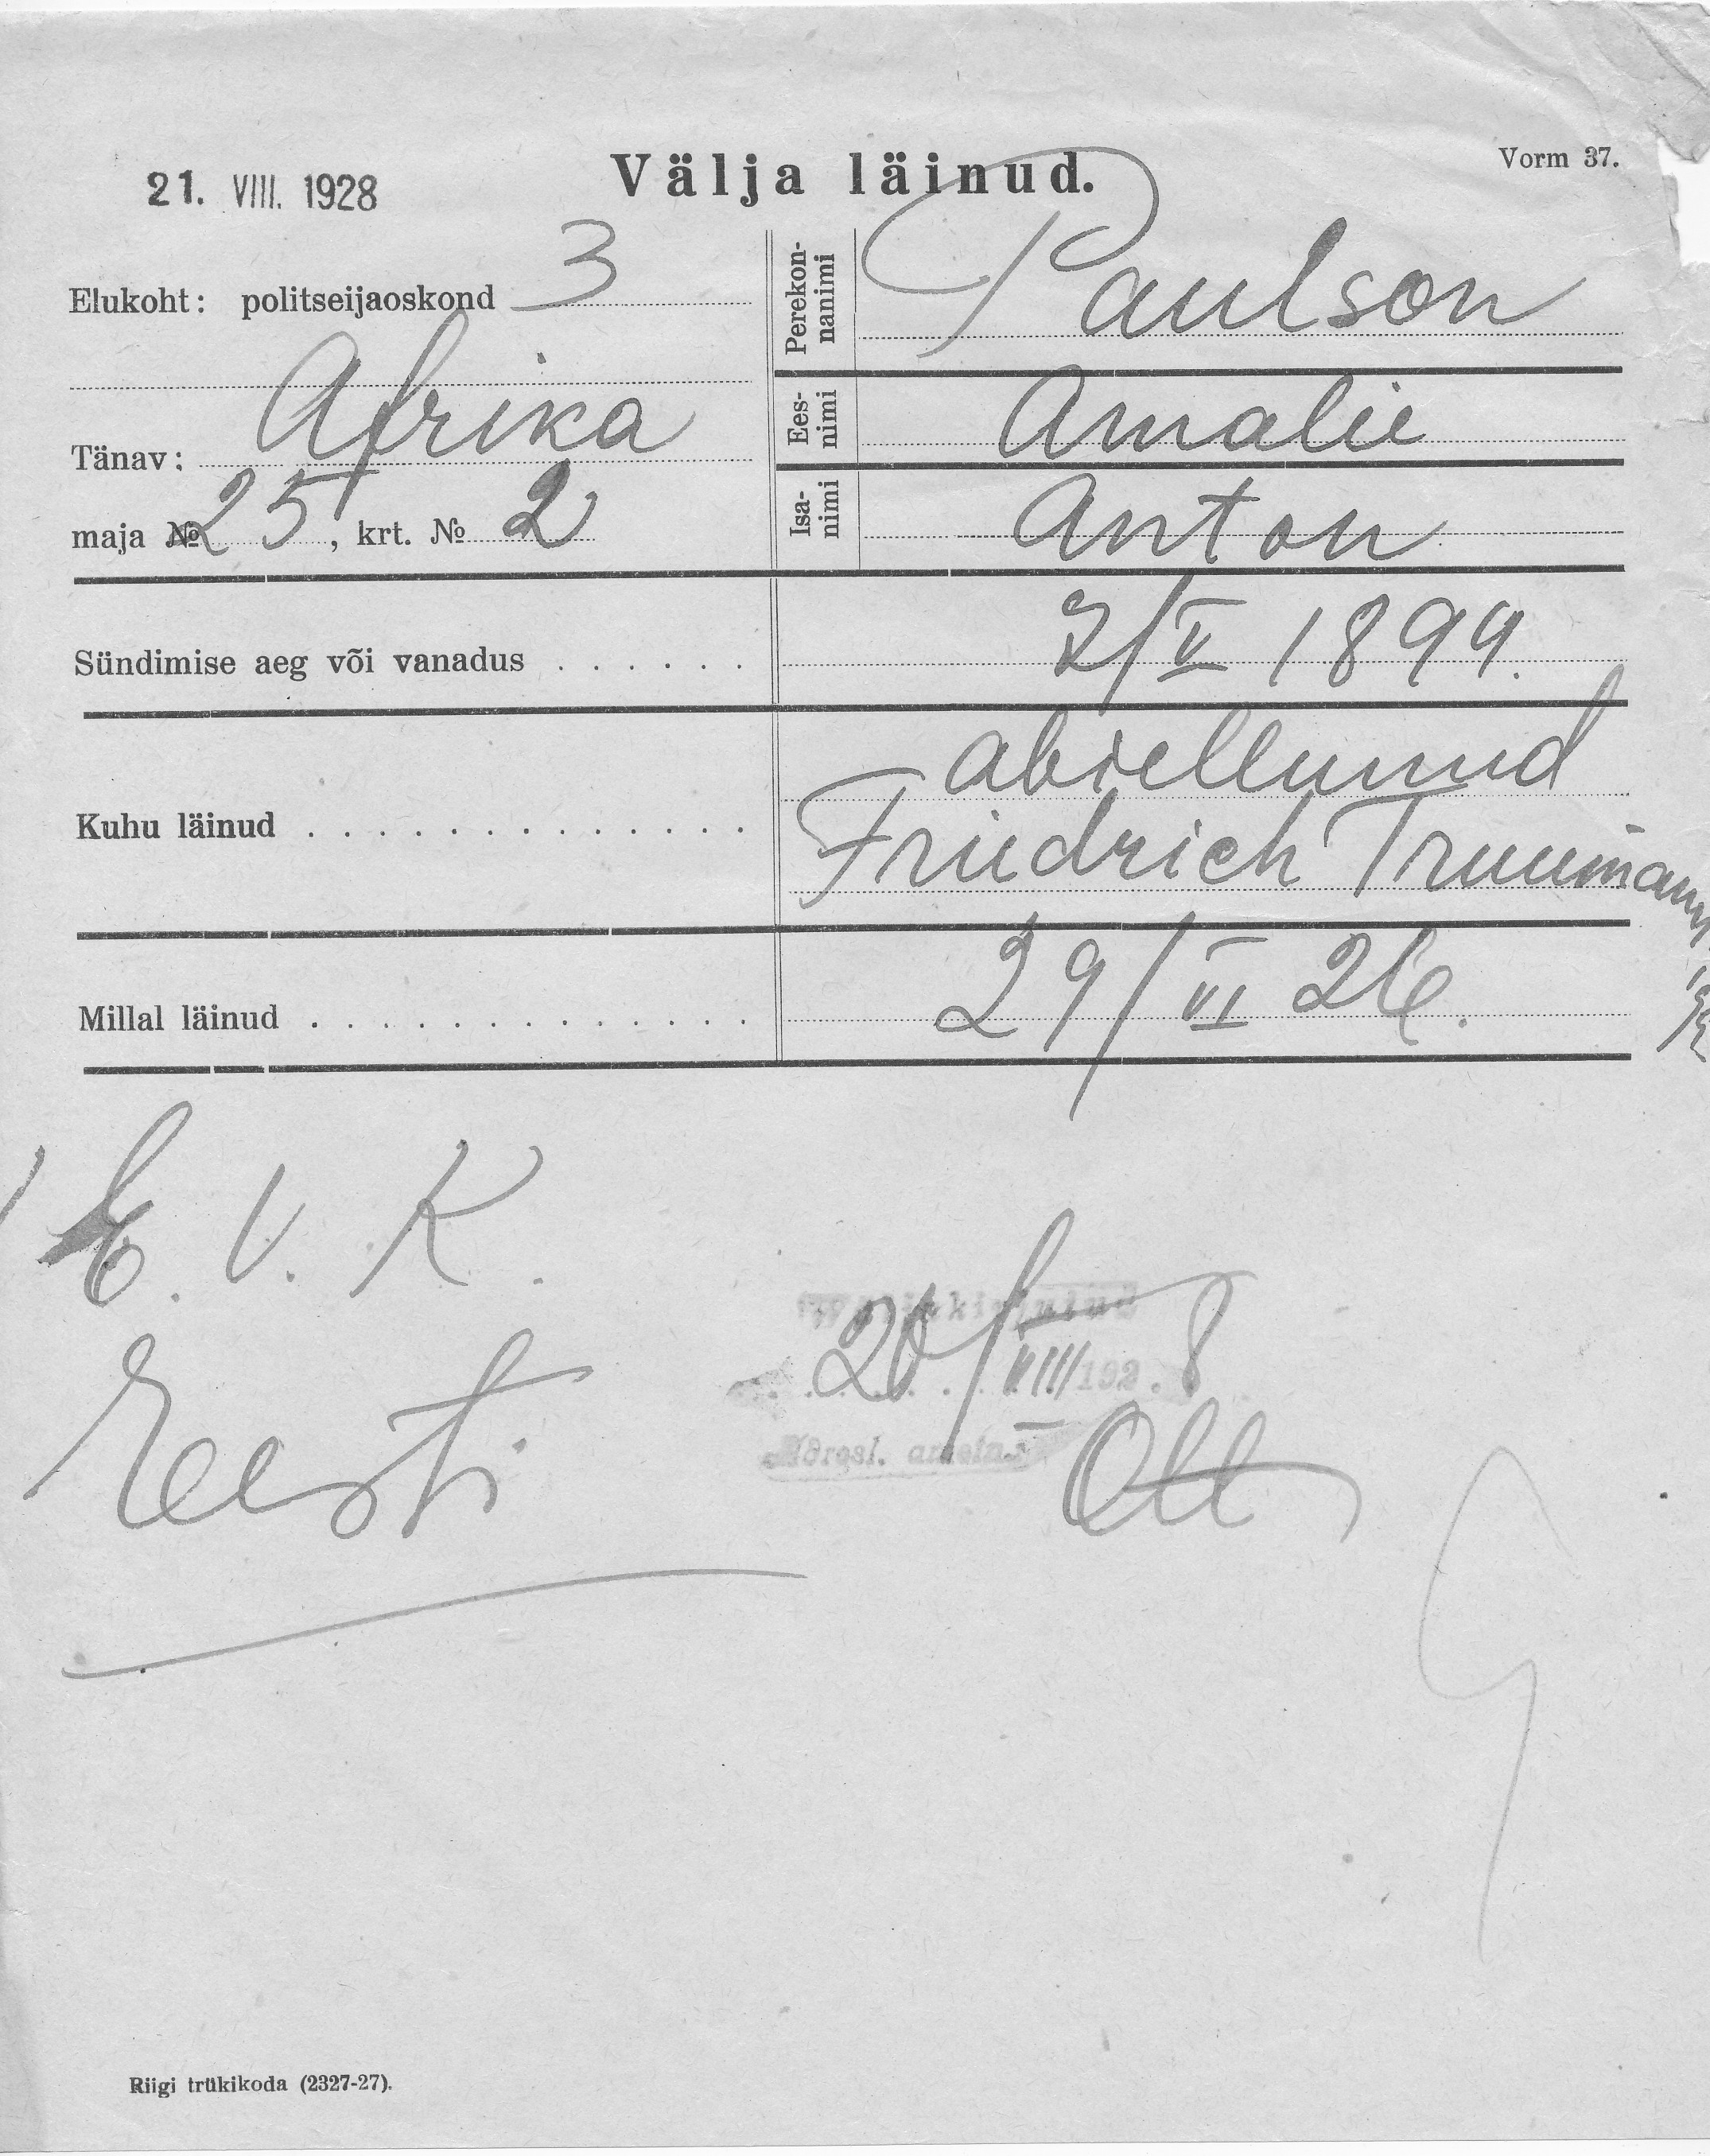 Vorm 37.
21. VIII. 1928
Välja läinud.
Elukoht: politseijaoskond 3
Tänav: Afrika
maja № 25, krt. № 2
Perekon-
nanimi
Paulson
Ees-
nimi
Amalie
Isa-
nimi
Anton
Sündimise aeg või vanadus . . . . . . 2/V 1899.
Kuhu läinud . . . . . . . . . . . . . .
abiellunud
Friedrich Truumann
Millal läinud . . . . . . . . . . . . . . 29/VI 26.
E. V. K.
Eesti
20/VIII 192.8
Ott
Riigi trükikoda (2327-27).